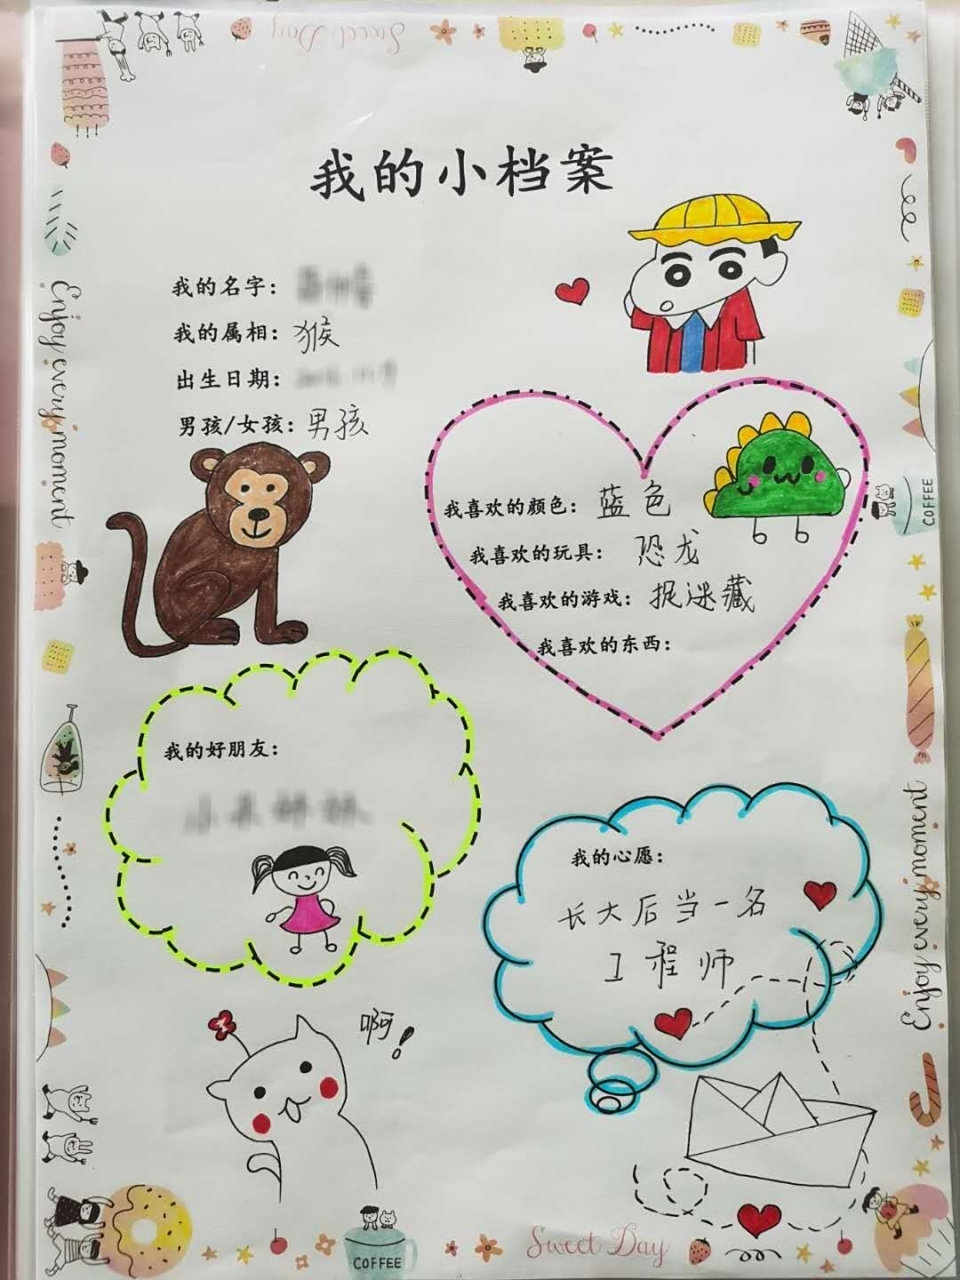 Sweet Day
我的小档案
我的名字：
我的属相：猴
出生日期：
男孩/女孩：男孩
Enjoy every moment
我喜欢的颜色：蓝色
我喜欢的玩具：恐龙
我喜欢的游戏：捉迷藏
我喜欢的东西：
COFFEE
我的好朋友：
我的心愿：
长大后当一名
工程师
Enjoy every moment
啊！
Sweet Day
COFFEE